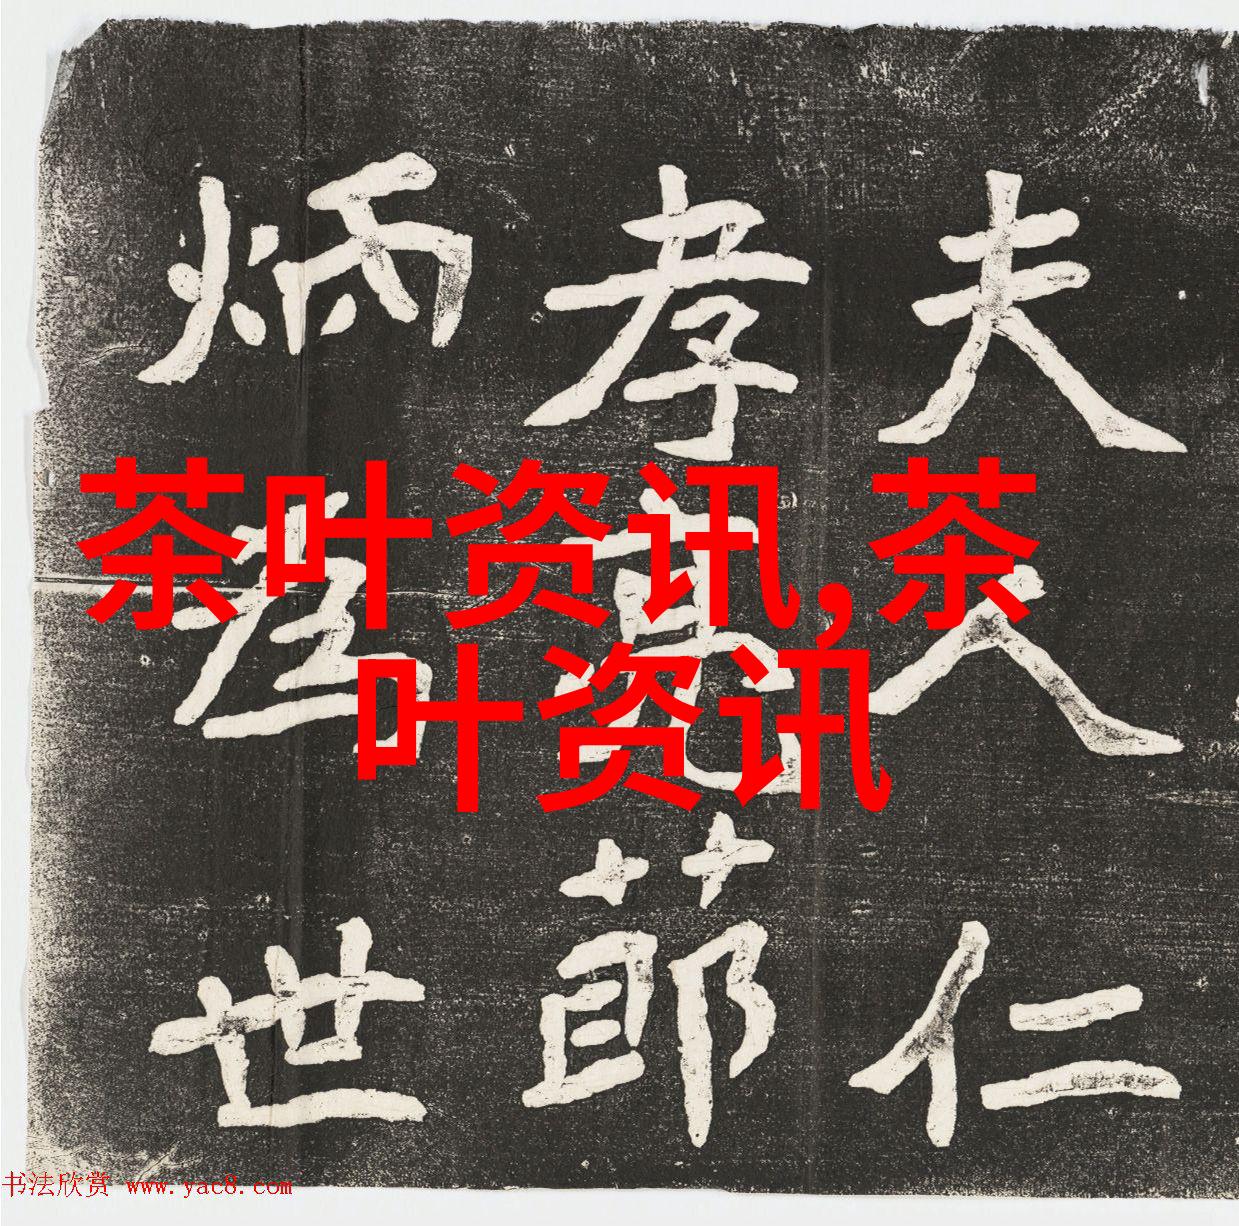 茶叶资讯,茶
叶资讯
夫人仁
孝莭
炳世
书法欣赏 www.yac8.com